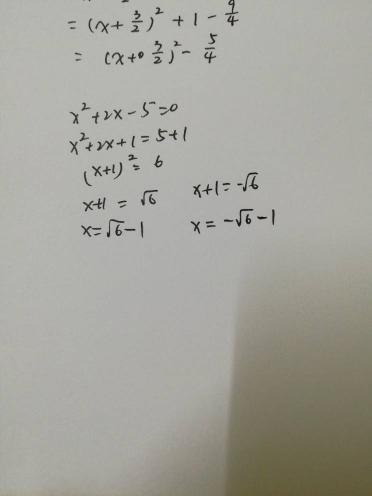 = (x + 3/2)² + 1 - 9/4
= (x + 3/2)² - 5/4
x² + 2x - 5 = 0
x² + 2x + 1 = 5 + 1
(x+1)² = 6
x+1 = √6 x+1 = -√6
x = √6 - 1 x = -√6 - 1